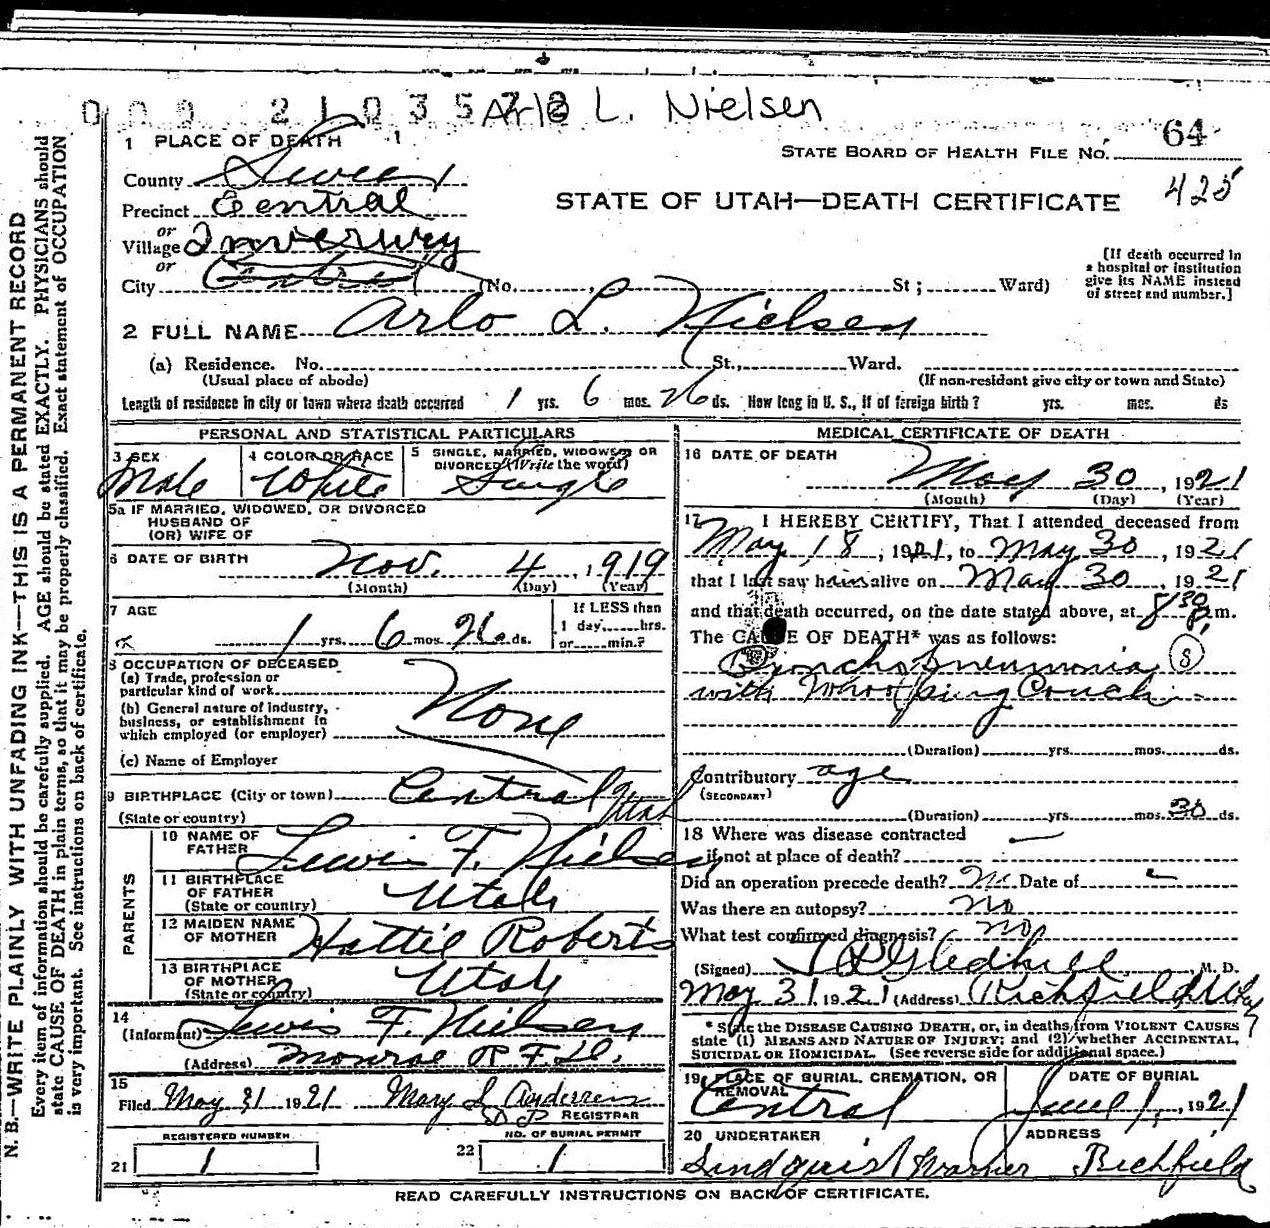 Arlo L. Nielsen
1 PLACE OF DEATH
STATE BOARD OF HEALTH FILE NO. 64
425
County Sevier
STATE OF UTAH—DEATH CERTIFICATE
Precinct Central
or
Village Inverury
or
City Central (No. St; Ward)
[If death occurred in a hospital or institution give its NAME instead of street and number.]
2 FULL NAME Arlo L. Nielsen
(a) Residence. No. St., Ward.
(Usual place of abode)
(If non-resident give city or town and State)
Length of residence in city or town where death occurred 1 yrs. 6 mos. 26 ds. How long in U. S., if of foreign birth? yrs. mos. ds
PERSONAL AND STATISTICAL PARTICULARS
3 SEX
Male
4 COLOR OR RACE
White
5 SINGLE, MARRIED, WIDOWED OR
DIVORCED (Write the word)
Single
5a IF MARRIED, WIDOWED, OR DIVORCED
HUSBAND OF
(OR) WIFE OF
6 DATE OF BIRTH
Nov. 4, 1919
(Month) (Day) (Year)
7 AGE
1 yrs. 6 mos. 26 ds.
If LESS than
1 day, hrs.
or min.?
8 OCCUPATION OF DECEASED
(a) Trade, profession or
particular kind of work
(b) General nature of industry,
business, or establishment in
which employed (or employer)
None
(c) Name of Employer
9 BIRTHPLACE (City or town) Central Utah
(State or country)
PARENTS
10 NAME OF
FATHER Lewis F. Nielsen
11 BIRTHPLACE
OF FATHER
(State or country) Utah
12 MAIDEN NAME
OF MOTHER Hattie Roberts
13 BIRTHPLACE
OF MOTHER
(State or country) Utah
14
(Informant) Lewis F. Nielsen
(Address) Monroe R F D.
15
Filed May 31 1921 Mary L Andersen
REGISTRAR
REGISTERED NUMBER
21 1
NO. OF BURIAL PERMIT
22 1
MEDICAL CERTIFICATE OF DEATH
16 DATE OF DEATH
May 30, 1921
(Month) (Day) (Year)
17 I HEREBY CERTIFY, That I attended deceased from
May 18, 1921, to May 30, 1921
that I last saw him alive on May 30, 1921
and that death occurred, on the date stated above, at 8 30 p.m.
The CAUSE OF DEATH* was as follows:
Broncho pneumonia
with Whooping Cough
(Duration) yrs. mos. ds.
Contributory age
(SECONDARY)
(Duration) yrs. mos. 30 ds.
18 Where was disease contracted
if not at place of death?
Did an operation precede death? No Date of
Was there an autopsy? No
What test confirmed diagnosis? No
(Signed) Gledhill, M. D.
May 31 1921 (Address) Richfield Utah
* State the DISEASE CAUSING DEATH, or, in deaths from VIOLENT CAUSES
state (1) MEANS AND NATURE OF INJURY; and (2) whether ACCIDENTAL,
SUICIDAL OR HOMICIDAL. (See reverse side for additional space.)
19 PLACE OF BURIAL, CREMATION, OR
REMOVAL
Central
DATE OF BURIAL
June 1, 1921
20 UNDERTAKER
Lindquist Warner
ADDRESS
Richfield
READ CAREFULLY INSTRUCTIONS ON BACK OF CERTIFICATE.
N. B.—WRITE PLAINLY WITH UNFADING INK—THIS IS A PERMANENT RECORD
Every item of information should be carefully supplied. AGE should be stated EXACTLY. PHYSICIANS should
state CAUSE OF DEATH in plain terms, so that it may be properly classified. Exact statement of OCCUPATION
is very important. See instructions on back of certificate.